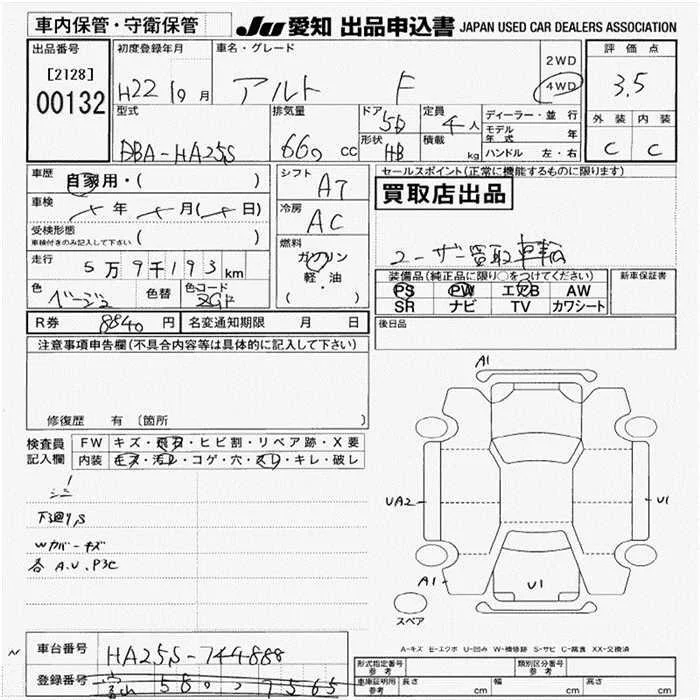 車内保管・守衛保管
JU 愛知 出品申込書 JAPAN USED CAR DEALERS ASSOCIATION
出品番号
[2128]
00132
初度登録年月
H22 / 9月
車名・グレード
アルト F
2WD
4WD
評価点
3.5
外装 内装
C C
型式
DBA-HA25S
排気量
660 cc
ドア
5D
形状
HB
定員
4人
積載
kg
ディーラー・並行
モデル年式 年
ハンドル 左・右
車歴
自家用・( )
車検
年 月( 日)
受検形態
車検付きのみ記入して下さい ( )
走行
5万9千193km
色
ベージュ
色替
色コード
シフト
AT
冷房
AC
燃料
ガソリン
軽・油
( )
セールスポイント(正常に機能するものに限ります)
買取店出品
ユーザー買取車輌
装備品(純正品に限り○をつけてください)
PS PW エアB AW
SR ナビ TV カワシート
新車保証書
後日品
R券 8840円 名変通知期限 月 日
注意事項申告欄(不具合内容等は具体的に記入して下さい)
修復歴 有 〔箇所 〕
検査員記入欄
FW キズ・飛石・ヒビ割・リペア跡・X要
内装 キズ・汚レ・コゲ・穴・スレ・キレ・破レ
下廻りS
Wカバーキズ
各 A.U.P3C
A1
UA2
U1
A1
U1
スペア
A-キズ E-エクボ U-凹み W-補修跡 S-サビ C-腐食 XX-交換済
車台番号 HA25S-744888
登録番号 580 7565
形式指定番号 参考
類別区分番号 参考
車庫証明用 参考 長さ cm 幅 cm 高さ cm